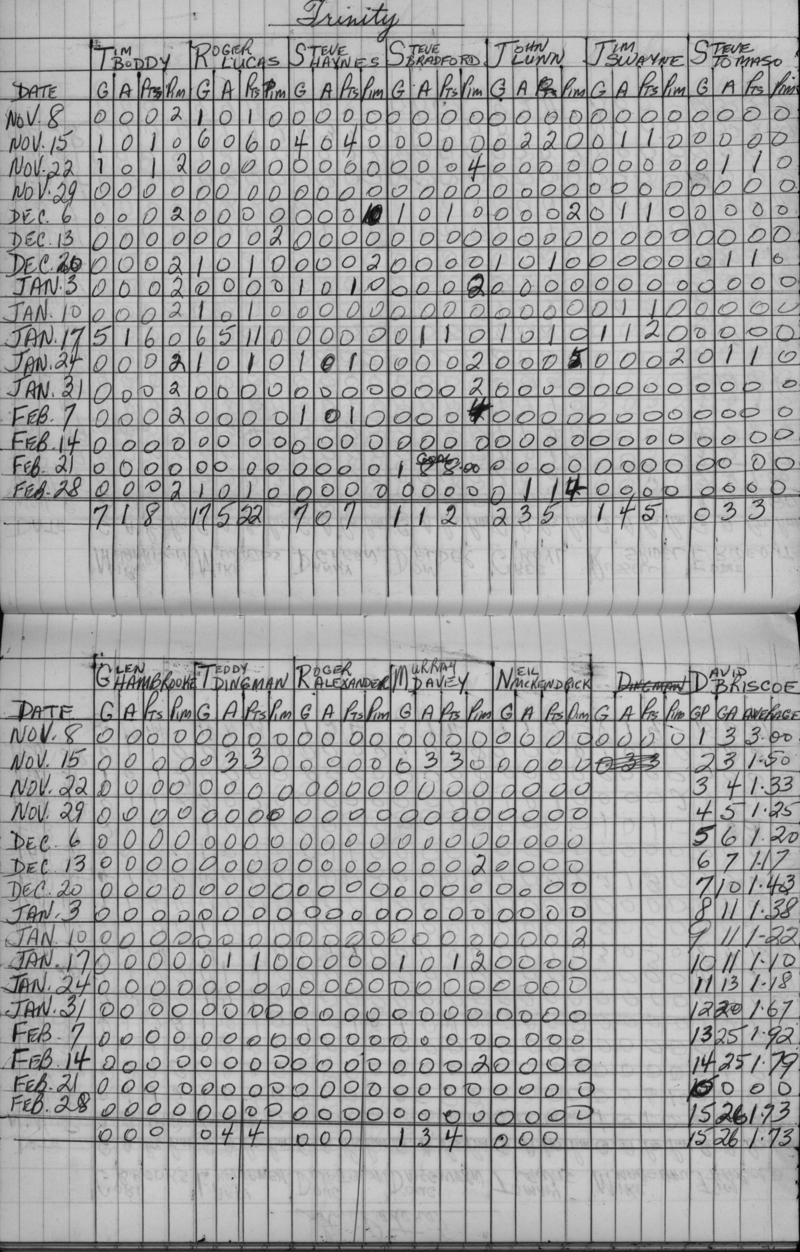 Trinity
TIM BODDY ROGER LUCAS STEVE HAYNES STEVE BRADFORD JOHN LUNN JIM SWAYNE STEVE TOMASO
DATE G A Pts Pim G A Pts Pim G A Pts Pim G A Pts Pim G A Pts Pim G A Pts Pim G A Pts Pim
NOV. 8 0 0 0 2 1 0 1 0 0 0 0 0 0 0 0 0 0 0 0 0 0 0 0 0 0 0 0 0
NOV. 15 1 0 1 0 6 0 6 0 4 0 4 0 0 0 0 0 0 2 2 0 0 1 1 0 0 0 0 0
NOV. 22 1 0 1 2 0 0 0 0 0 0 0 0 0 0 0 4 0 0 0 0 0 0 0 0 0 1 1 0
NOV. 29 0 0 0 0 0 0 0 0 0 0 0 0 0 0 0 0 0 0 0 0 0 0 0 0 0 0 0 0
DEC. 6 0 0 0 2 0 0 0 0 0 0 0 10 1 0 1 0 0 0 0 2 0 1 1 0 0 0 0 0
DEC. 13 0 0 0 0 0 0 0 2 0 0 0 0 0 0 0 0 0 0 0 0 0 0 0 0 0 0 0 0
DEC. 20 0 0 0 2 1 0 1 0 0 0 0 2 0 0 0 0 1 0 1 0 0 0 0 0 0 1 1 0
JAN. 3 0 0 0 2 0 0 0 0 1 0 1 0 0 0 0 2 0 0 0 0 0 0 0 0 0 0 0 0
JAN. 10 0 0 0 2 1 0 1 0 0 0 0 0 0 0 0 0 0 0 0 0 0 1 1 0 0 0 0 0
JAN. 17 5 1 6 0 6 5 11 0 0 0 0 0 0 1 1 0 1 0 1 0 1 1 2 0 0 0 0 0
JAN. 24 0 0 0 2 1 0 1 0 1 0 1 0 0 0 0 2 0 0 0 5 0 0 0 2 0 1 1 0
JAN. 31 0 0 0 2 0 0 0 0 0 0 0 0 0 0 0 2 0 0 0 0 0 0 0 0 0 0 0 0
FEB. 7 0 0 0 2 0 0 0 0 1 0 1 0 0 0 0 4 0 0 0 0 0 0 0 0 0 0 0 0
FEB. 14 0 0 0 0 0 0 0 0 0 0 0 0 0 0 0 0 0 0 0 0 0 0 0 0 0 0 0 0
FEB. 21 0 0 0 0 0 0 0 0 0 0 0 0 1 GOAL 8 8.00 0 0 0 0 0 0 0 0 0 0 0 0
FEB. 28 0 0 0 2 1 0 1 0 0 0 0 0 0 0 0 0 0 1 1 4 0 0 0 0 0 0 0 0
7 1 8 17 5 22 7 0 7 1 1 2 2 3 5 1 4 5 0 3 3
GLEN HAMBROOKE TEDDY DINGMAN ROGER ALEXANDER MURRAY DAVEY NEIL MCKENDRICK DINGMAN DAVID BRISCOE
DATE G A Pts Pim G A Pts Pim G A Pts Pim G A Pts Pim G A Pts Pim G A Pts Pim GP GA AVERAGE
NOV. 8 0 0 0 0 0 0 0 0 0 0 0 0 0 0 0 0 0 0 0 0 0 0 0 0 1 3 3.00
NOV. 15 0 0 0 0 0 3 3 0 0 0 0 0 0 3 3 0 0 0 0 0 0 3 3 2 3 1.50
NOV. 22 0 0 0 0 0 0 0 0 0 0 0 0 0 0 0 0 0 0 0 0 3 4 1.33
NOV. 29 0 0 0 0 0 0 0 0 0 0 0 0 0 0 0 0 0 0 0 0 4 5 1.25
DEC. 6 0 0 0 0 0 0 0 0 0 0 0 0 0 0 0 0 0 0 0 0 5 6 1.20
DEC 13 0 0 0 0 0 0 0 0 0 0 0 0 0 0 0 2 0 0 0 0 6 7 1.17
DEC. 20 0 0 0 0 0 0 0 0 0 0 0 0 0 0 0 0 0 0 0 0 7 10 1.43
JAN. 3 0 0 0 0 0 0 0 0 0 0 0 0 0 0 0 0 0 0 0 0 8 11 1.38
JAN. 10 0 0 0 0 0 0 0 0 0 0 0 0 0 0 0 0 0 0 0 2 9 11 1.22
JAN. 17 0 0 0 0 0 1 1 0 0 0 0 0 1 0 1 2 0 0 0 0 10 11 1.10
JAN. 24 0 0 0 0 0 0 0 0 0 0 0 0 0 0 0 0 0 0 0 0 11 13 1.18
JAN. 31 0 0 0 0 0 0 0 0 0 0 0 0 0 0 0 0 0 0 0 0 12 20 1.67
FEB. 7 0 0 0 0 0 0 0 0 0 0 0 0 0 0 0 0 0 0 0 0 13 25 1.92
FEB. 14 0 0 0 0 0 0 0 0 0 0 0 0 0 0 0 2 0 0 0 0 14 25 1.79
FEB. 21 0 0 0 0 0 0 0 0 0 0 0 0 0 0 0 0 0 0 0 0 0 0 0
FEB. 28 0 0 0 0 0 0 0 0 0 0 0 0 0 0 0 0 0 0 0 0 15 26 1.73
0 0 0 0 4 4 0 0 0 1 3 4 0 0 0 15 26 1.73